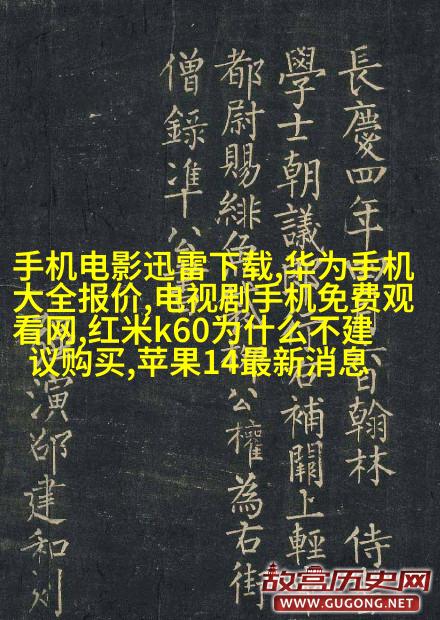 長慶四年 日翰林 侍
學士朝議 右補闕上輕
都尉賜緋 公權為右街
僧錄准公
演邵建和刻
手机电影迅雷下载,华为手机
大全报价,电视剧手机免费观
看网,红米k60为什么不建
议购买,苹果14最新消息
故宫历史网
WWW.GUGONG.NET